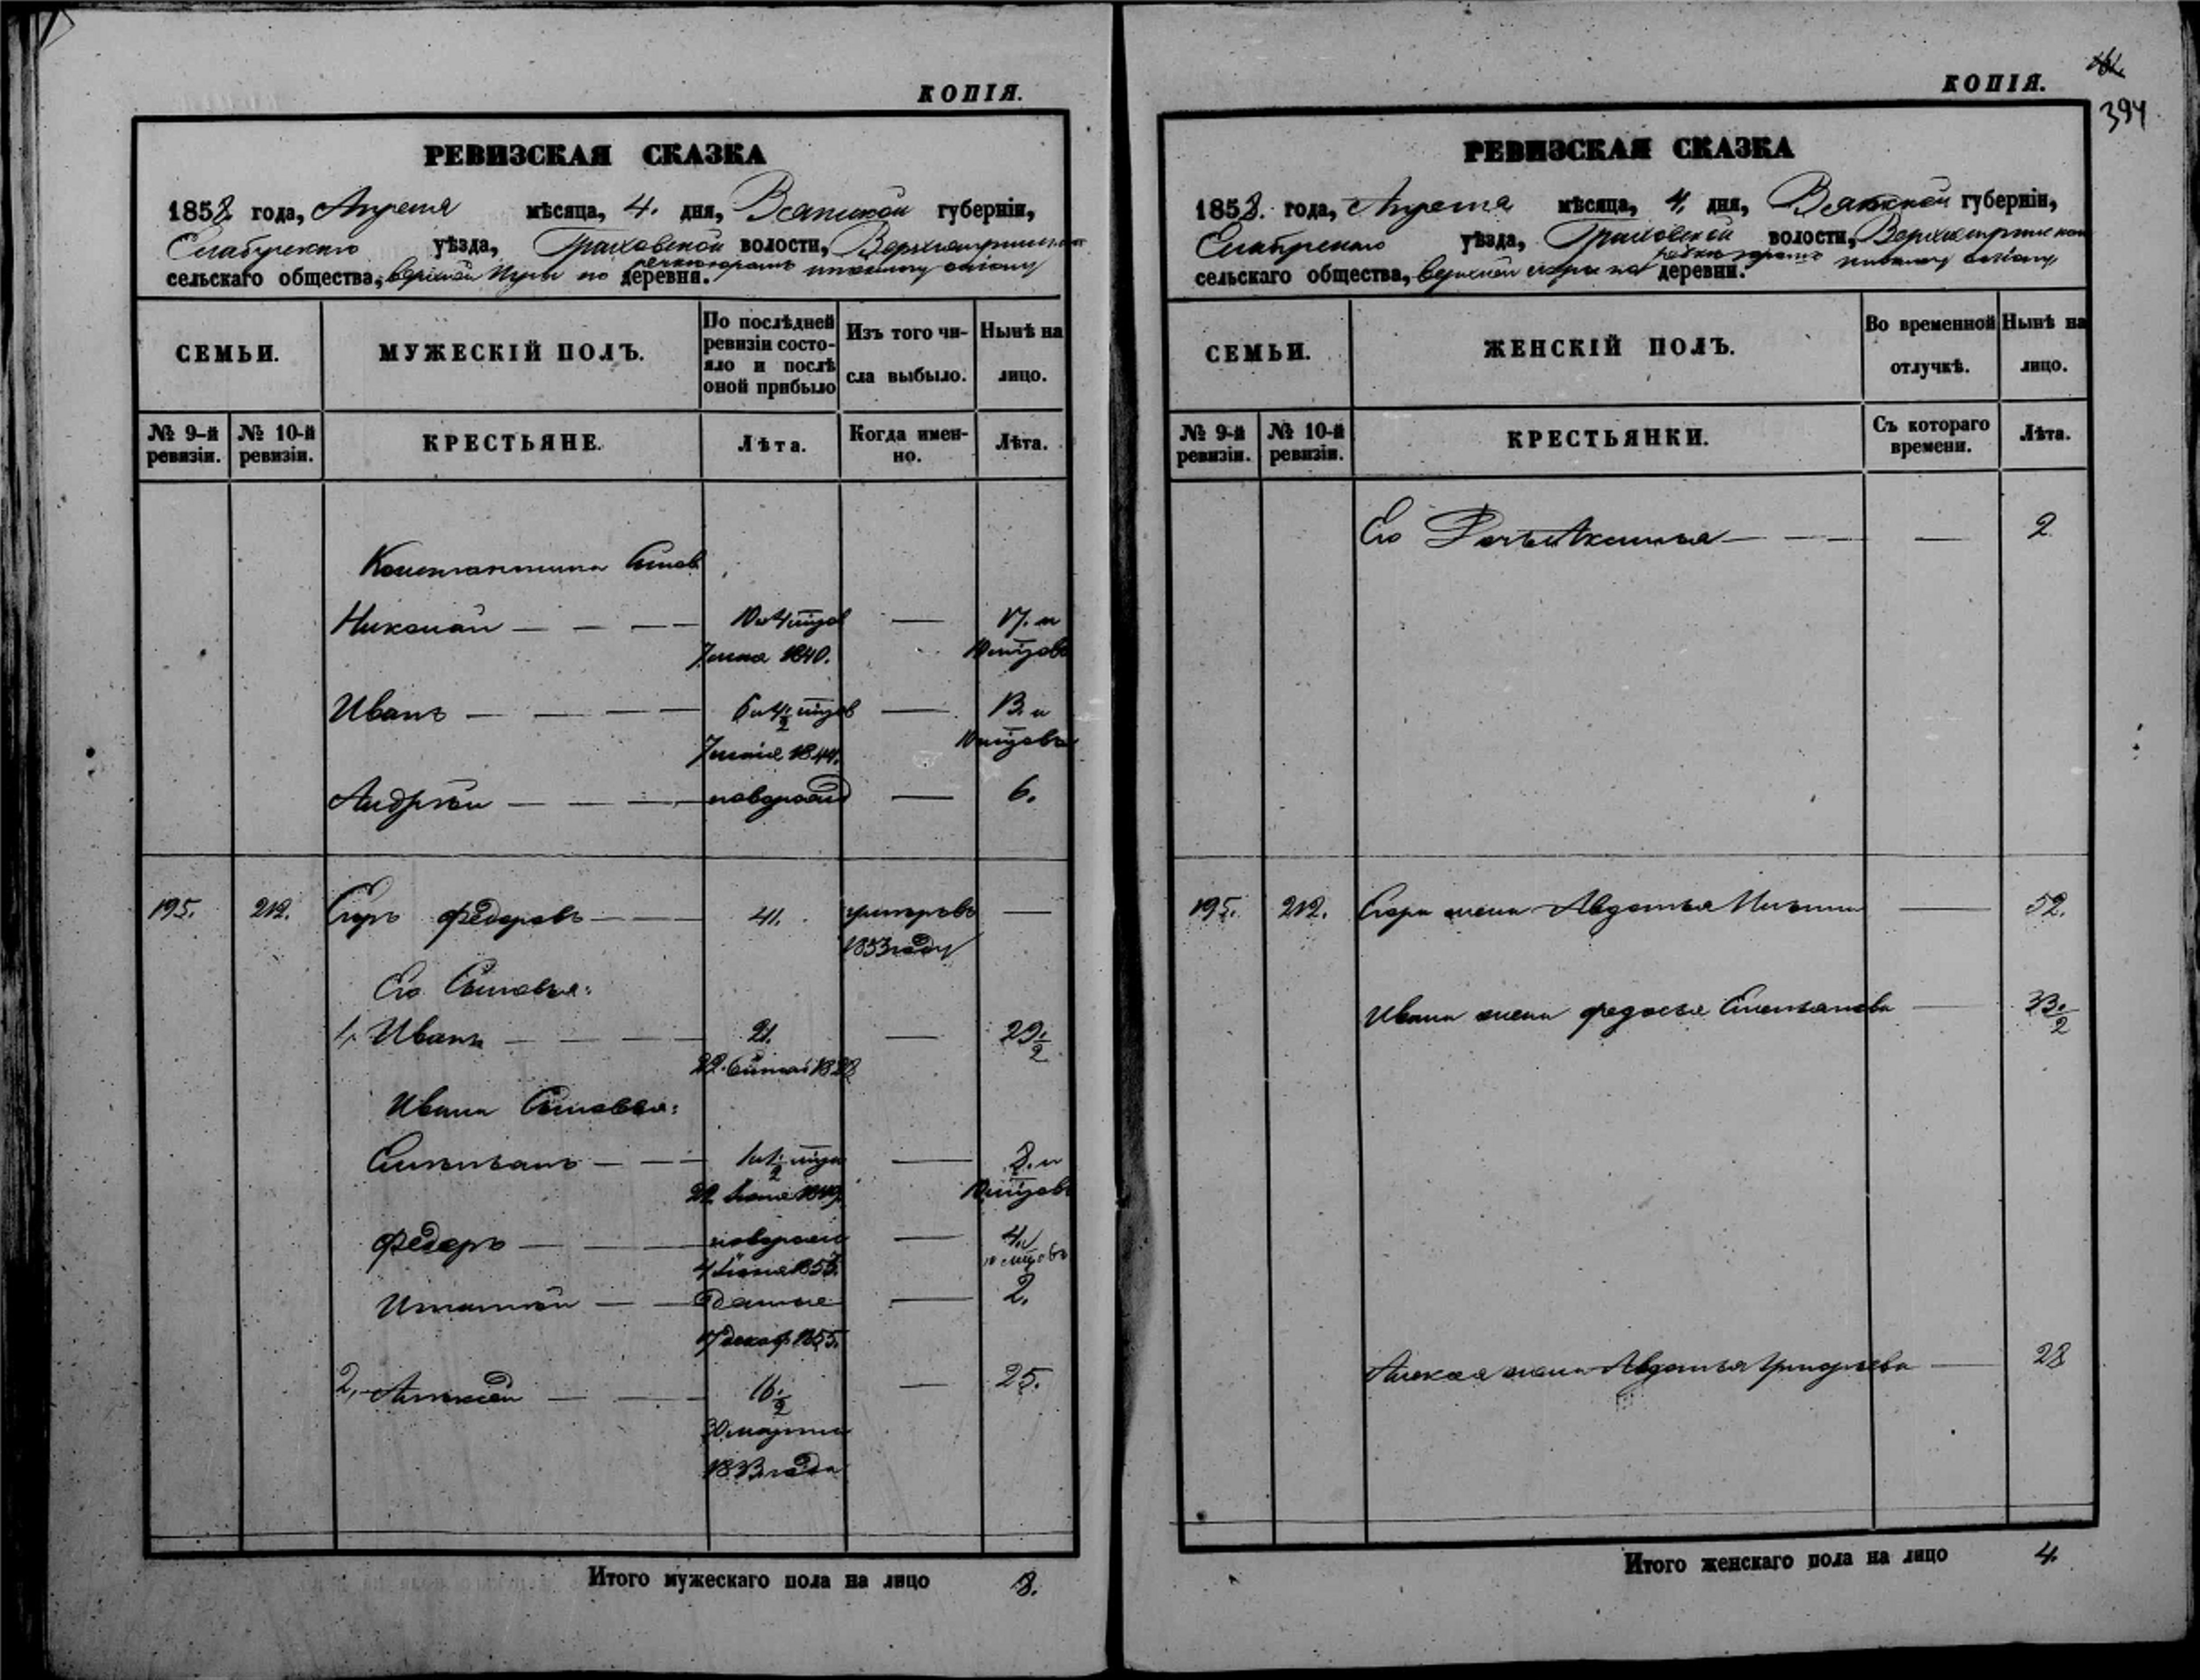 КОПІЯ.
РЕВИЗСКАЯ СКАЗКА
1858 года, Апреля мѣсяца, 4. дня, Вятской губерніи,
Елабужскаго уѣзда, Граховской волости,
сельскаго общества, верхней Игры по деревни.
СЕМЬИ.
МУЖЕСКІЙ ПОЛЪ.
По послѣдней ревизіи состояло и послѣ оной прибыло
Изъ того числа выбыло.
Нынѣ на лицо.
№ 9-й ревизіи.
№ 10-й ревизіи.
КРЕСТЬЯНЕ.
Лѣта.
Когда именно.
Лѣта.
Константина Сынов.
Николай — — — 10 и 4 мѣся — 17. и
7 мая 1840. 10 мѣсяцов
Иванъ — — — 6 и 4 1/2 мѣся — 13. и
1844. 10 мѣсяцов
Андрѣй — — — новорожд — 6.
195. 212. Егоръ Федоровъ — 41. умеръ въ —
1853 году
Его Сыновья:
1, Иванъ — — — 21. — 29 1/2
22. 1828
Ивана Сыновья:
Степанъ — — — 8. и
1849. 10 мѣсяцов
Федоръ — — новорожд — 4 и
4 Іюня 1853. 10 мѣсяцовъ
Игнатій — — — 2.
17 декаб. 1855.
2, Алексѣй — — 16 1/2 — 25.
30 марта
1833 года
Итого мужескаго пола на лицо 8.
КОПІЯ.
394
РЕВИЗСКАЯ СКАЗКА
1858. года, Апреля мѣсяца, 4. дня, Вятской губерніи,
Елабужскаго уѣзда, Граховской волости,
сельскаго общества, верхней Игры по деревни.
СЕМЬИ.
ЖЕНСКІЙ ПОЛЪ.
Во временной отлучкѣ.
Нынѣ на лицо.
№ 9-й ревизіи.
№ 10-й ревизіи.
КРЕСТЬЯНКИ.
Съ котораго времени.
Лѣта.
Его Дочь Аксинья — — — 2
195. 212. Егора жена Авдотья — 52.
Ивана жена Федосья Степанова — 33 1/2
Алексея жена Авдотья Григорьева — 28
Итого женскаго пола на лицо 4.